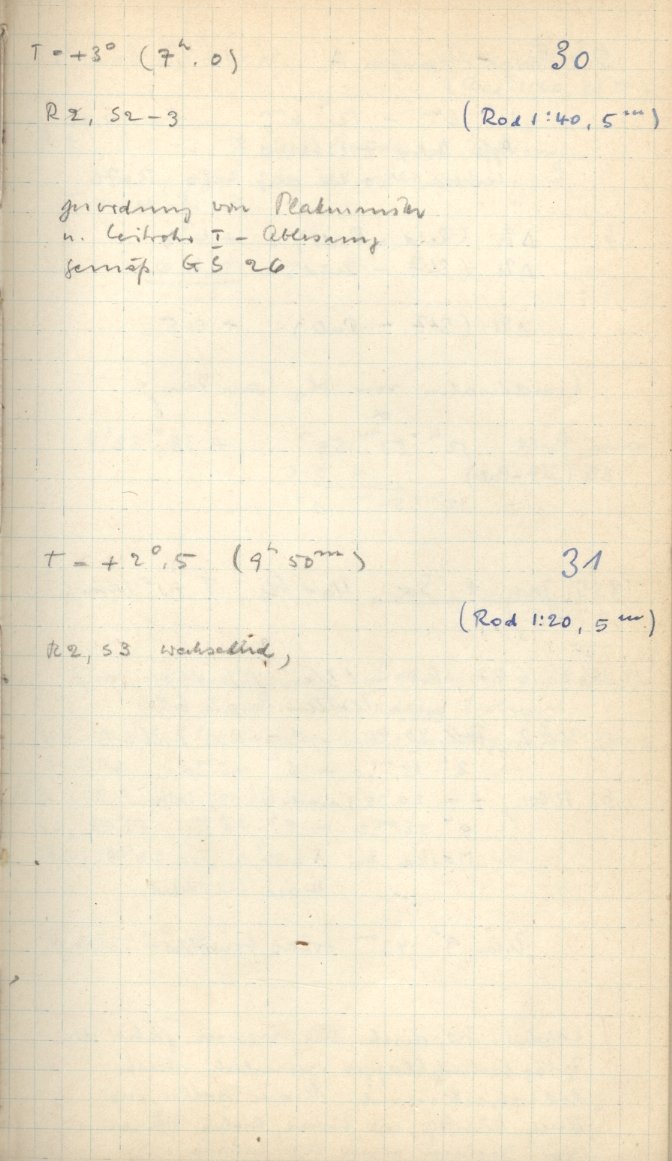 T = +3° (7ʰ.0) 30
R2, S2-3 (Rod 1:40, 5ᵐ)
Zuordnung von Plattenmitte
u. Leitrohr I - Ablesung
gemäß GS 26
T = +2°.5 (9ʰ 50ᵐ) 31
(Rod 1:20, 5ᵐ)
R2, S3 wechselnd,